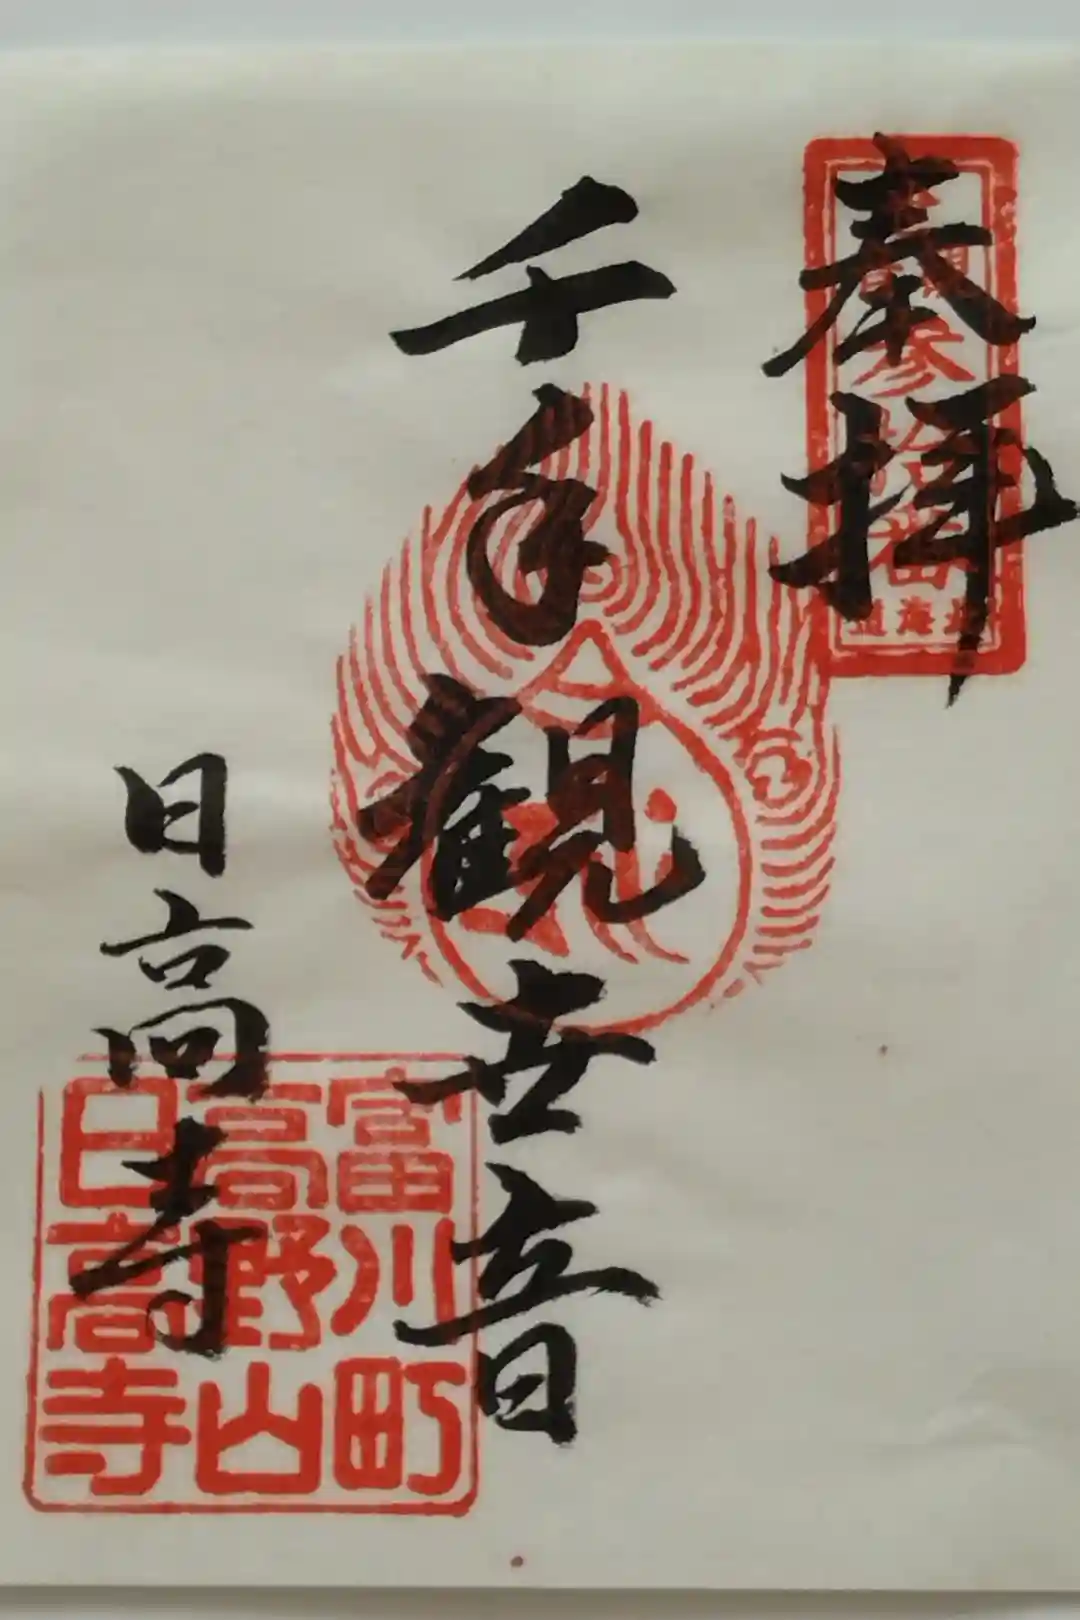 奉拝
千手観世音
日高寺
富川町
高野山
日高寺